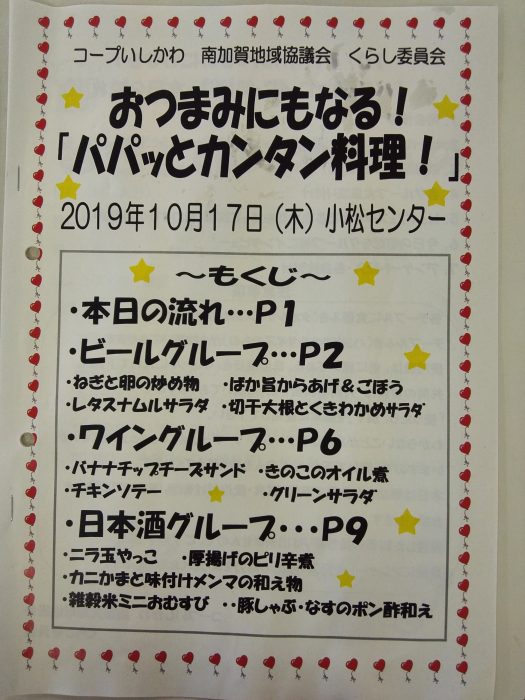 コープいしかわ　南加賀地域協議会　くらし委員会
おつまみにもなる！
「パパッとカンタン料理！」
2019年10月17日（木）小松センター
～もくじ～
・本日の流れ…P1
・ビールグループ…P2
・ねぎと卵の炒め物　・ばか旨からあげ＆ごぼう
・レタスナムルサラダ　・切干大根とくきわかめサラダ
・ワイングループ…P6
・バナナチップチーズサンド　・きのこのオイル煮
・チキンソテー　・グリーンサラダ
・日本酒グループ・・・P9
・ニラ玉やっこ　・厚揚げのピリ辛煮
・カニかまと味付けメンマの和え物
・雑穀米ミニおむすび　・・豚しゃぶ・なすのポン酢和え